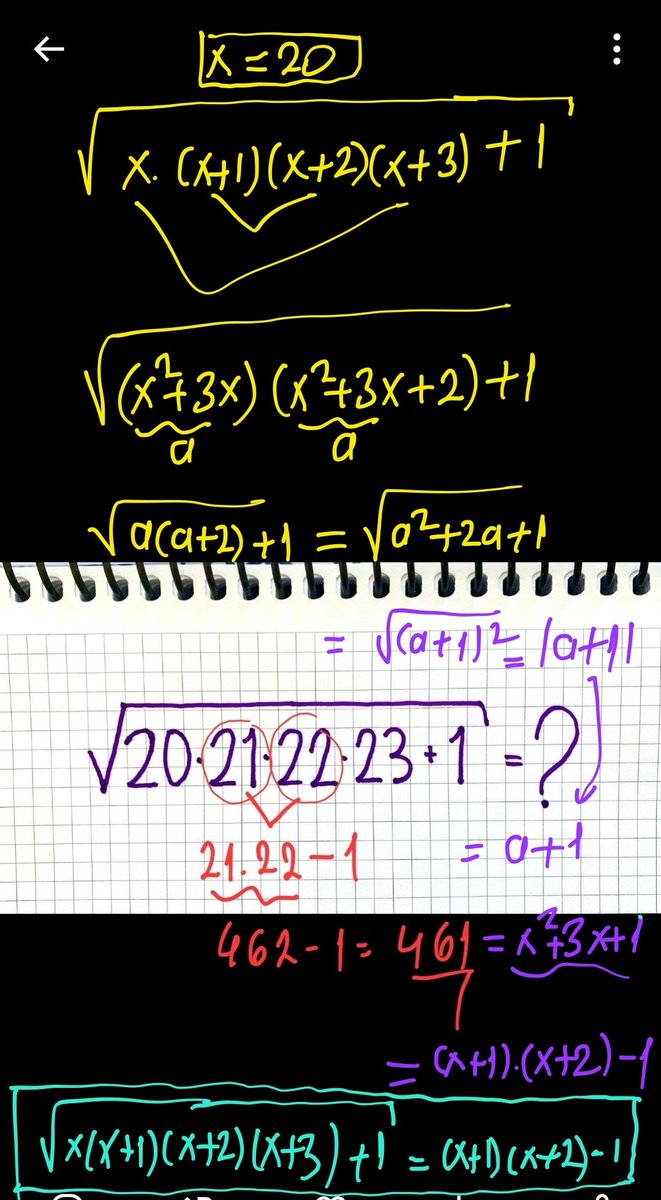 x = 20
√(x.(x+1)(x+2)(x+3) + 1)
√((x²+3x)(x²+3x+2)+1)
a a
√(a(a+2)+1) = √(a²+2a+1)
= √(a+1)² = |a+1|
√(20·21·22·23+1) = ?
21.22-1 = a+1
462-1 = 461 = x²+3x+1
= (x+1).(x+2)-1
√(x(x+1)(x+2)(x+3)+1) = (x+1)(x+2)-1